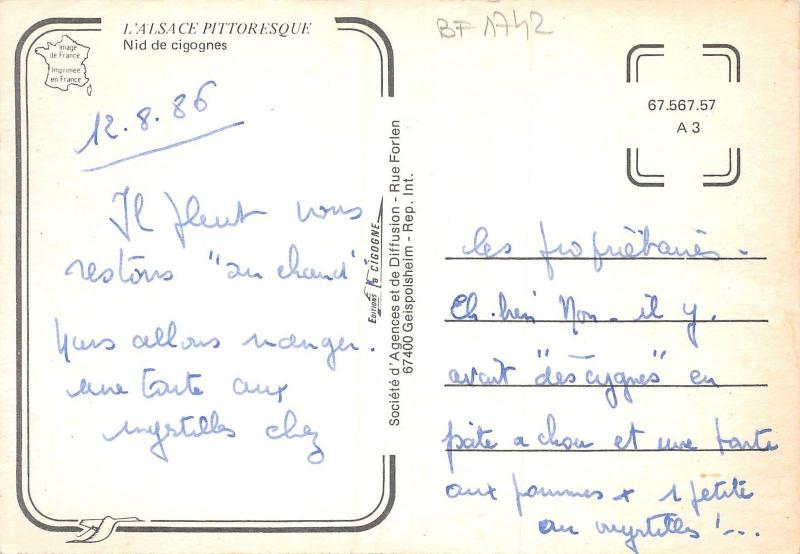 L'ALSACE PITTORESQUE
Nid de cigognes
Image
de France
Imprimée
en France
BF 1742
67.567.57
A 3
12.8.86
Il pleut nous
restons "au chaud"
Nous allons manger.
une tarte aux
myrtilles chez
Editions la CIGOGNE
Société d'Agences et de Diffusion - Rue Forlen
67400 Geispolsheim - Rep. Int.
les propriétaires -
Eh. bien Non - il y.
avait "des cygnes" en
pâte a chou et une tarte
aux pommes x 1 petite
au myrtilles !...